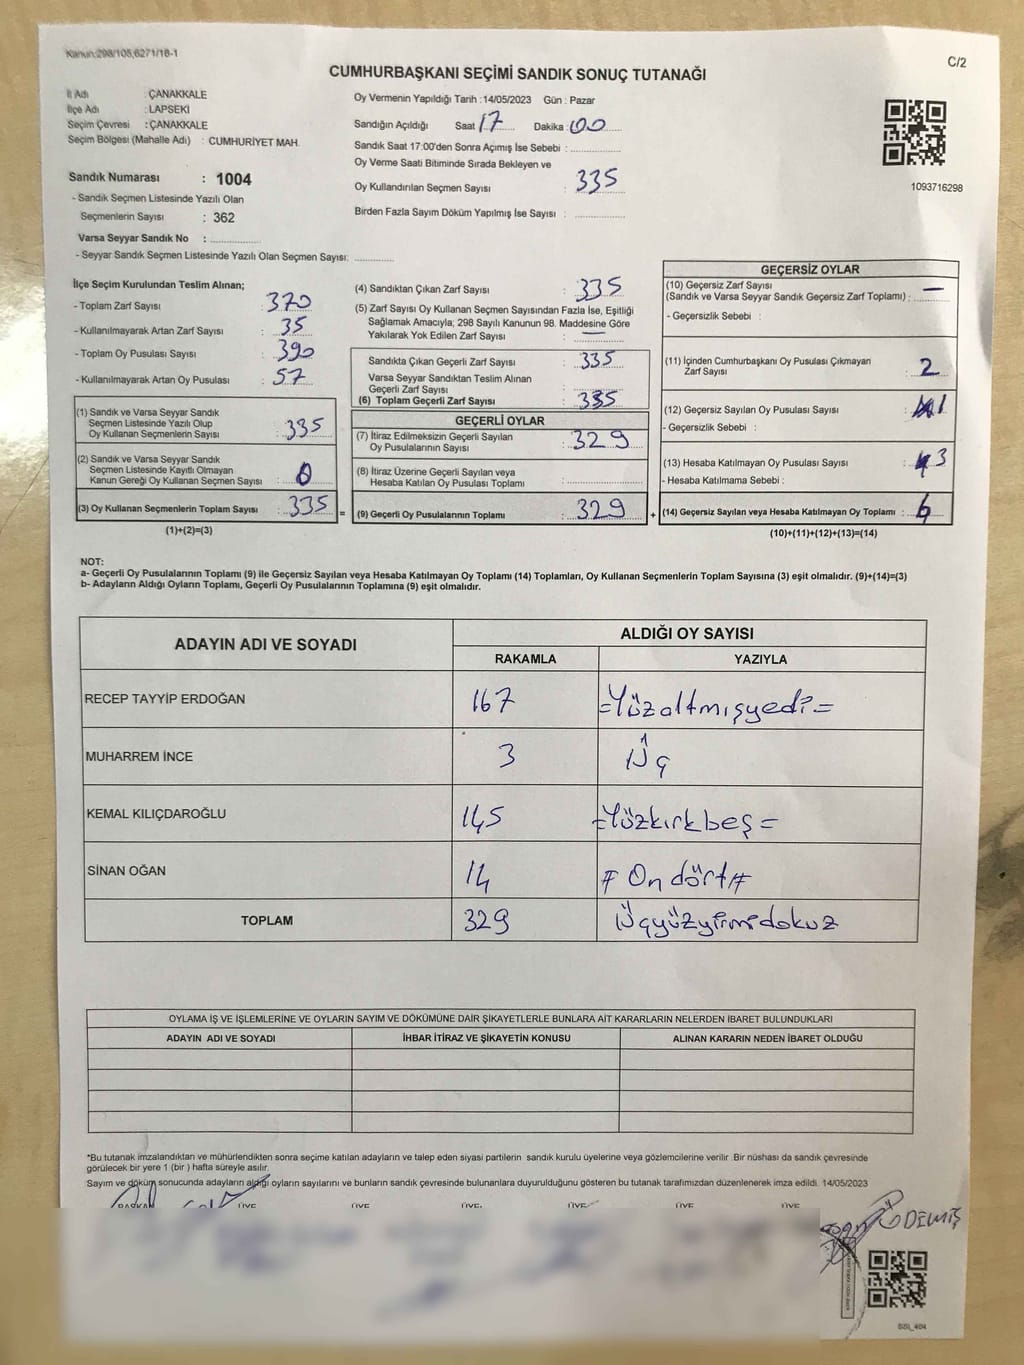 Kanun:298/105,6271/16-1
C/2
CUMHURBAŞKANI SEÇİMİ SANDIK SONUÇ TUTANAĞI
İl Adı : ÇANAKKALE
İlçe Adı : LAPSEKİ
Seçim Çevresi : ÇANAKKALE
Seçim Bölgesi (Mahalle Adı) : CUMHURİYET MAH.
Sandık Numarası : 1004
- Sandık Seçmen Listesinde Yazılı Olan
Seçmenlerin Sayısı : 362
Varsa Seyyar Sandık No : ..............
- Seyyar Sandık Seçmen Listesinde Yazılı Olan Seçmen Sayısı: ............
Oy Vermenin Yapıldığı Tarih :14/05/2023 Gün : Pazar
Sandığın Açıldığı Saat 17 Dakika : 00
Sandık Saat 17:00'den Sonra Açımış İse Sebebi : ..............
Oy Verme Saati Bitiminde Sırada Bekleyen ve
Oy Kullandırılan Seçmen Sayısı : 335
Birden Fazla Sayım Döküm Yapılmış İse Sayısı : ..............
1093716298
İlçe Seçim Kurulundan Teslim Alınan;
- Toplam Zarf Sayısı : 370
- Kullanılmayarak Artan Zarf Sayısı : 35
- Toplam Oy Pusulası Sayısı : 390
- Kullanılmayarak Artan Oy Pusulası : 57
(1) Sandık ve Varsa Seyyar Sandık
Seçmen Listesinde Yazılı Olup
Oy Kullanan Seçmenlerin Sayısı : 335
(2) Sandık ve Varsa Seyyar Sandık
Seçmen Listesinde Kayıtlı Olmayan
Kanun Gereği Oy Kullanan Seçmen Sayısı : 0
(3) Oy Kullanan Seçmenlerin Toplam Sayısı : 335 =
(1)+(2)=(3)
(4) Sandıktan Çıkan Zarf Sayısı : 335
(5) Zarf Sayısı Oy Kullanan Seçmen Sayısından Fazla İse, Eşitliği
Sağlamak Amacıyla; 298 Sayılı Kanunun 98. Maddesine Göre
Yakılarak Yok Edilen Zarf Sayısı : —
Sandıkta Çıkan Geçerli Zarf Sayısı : 335
Varsa Seyyar Sandıktan Teslim Alınan
Geçerli Zarf Sayısı : ..............
(6) Toplam Geçerli Zarf Sayısı : 335
GEÇERLİ OYLAR
(7) İtiraz Edilmeksizin Geçerli Sayılan
Oy Pusulalarının Sayısı : 329
(8) İtiraz Üzerine Geçerli Sayılan veya
Hesaba Katılan Oy Pusulası Toplamı : ..............
(9) Geçerli Oy Pusulalarının Toplamı : 329 +
GEÇERSİZ OYLAR
(10) Geçersiz Zarf Sayısı
(Sandık ve Varsa Seyyar Sandık Geçersiz Zarf Toplamı) : —
- Geçersizlik Sebebi :
(11) İçinden Cumhurbaşkanı Oy Pusulası Çıkmayan
Zarf Sayısı : 2
(12) Geçersiz Sayılan Oy Pusulası Sayısı : 1
- Geçersizlik Sebebi :
(13) Hesaba Katılmayan Oy Pusulası Sayısı : 3
- Hesaba Katılmama Sebebi :
(14) Geçersiz Sayılan veya Hesaba Katılmayan Oy Toplamı : 6
(10)+(11)+(12)+(13)=(14)
NOT:
a- Geçerli Oy Pusulalarının Toplamı (9) ile Geçersiz Sayılan veya Hesaba Katılmayan Oy Toplamı (14) Toplamları, Oy Kullanan Seçmenlerin Toplam Sayısına (3) eşit olmalıdır. (9)+(14)=(3)
b- Adayların Aldığı Oyların Toplamı, Geçerli Oy Pusulalarının Toplamına (9) eşit olmalıdır.
ADAYIN ADI VE SOYADI
ALDIĞI OY SAYISI
RAKAMLA YAZIYLA
RECEP TAYYİP ERDOĞAN 167 =Yüzaltmışyedi=
MUHARREM İNCE 3 Üç
KEMAL KILIÇDAROĞLU 145 =Yüzkırkbeş=
SİNAN OĞAN 14 # On dört #
TOPLAM 329 Üçyüzyirmidokuz
OYLAMA İŞ VE İŞLEMLERİNE VE OYLARIN SAYIM VE DÖKÜMÜNE DAİR ŞİKAYETLERLE BUNLARA AİT KARARLARIN NELERDEN İBARET BULUNDUKLARI
ADAYIN ADI VE SOYADI İHBAR İTİRAZ VE ŞİKAYETİN KONUSU ALINAN KARARIN NEDEN İBARET OLDUĞU
*Bu tutanak imzalandıktan ve mühürlendikten sonra seçime katılan adayların ve talep eden siyasi partilerin sandık kurulu üyelerine veya gözlemcilerine verilir .Bir nüshası da sandık çevresinde
görülecek bir yere 1 (bir ) hafta süreyle asılır.
Sayım ve döküm sonucunda adayların aldığı oyların sayılarını ve bunların sandık çevresinde bulunanlara duyurulduğunu gösteren bu tutanak tarafımızdan düzenlenerek imza edildi. 14/05/2023
BAŞKAN ÜYE ÜYE ÜYE ÜYE ÜYE ÜYE
DEMİŞ